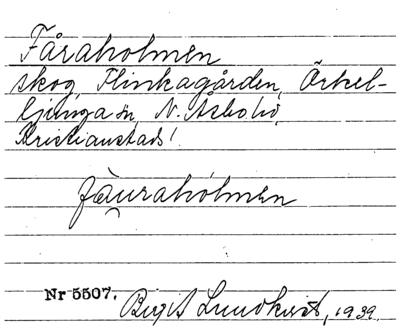 Fåraholmen
skog, Flinkagården, Örkel-
ljunga sn, N. Åsbo hd,
Kristianstads l.
fåuraholmen
Nr 5507. Birgit Lundkvist, 1939.